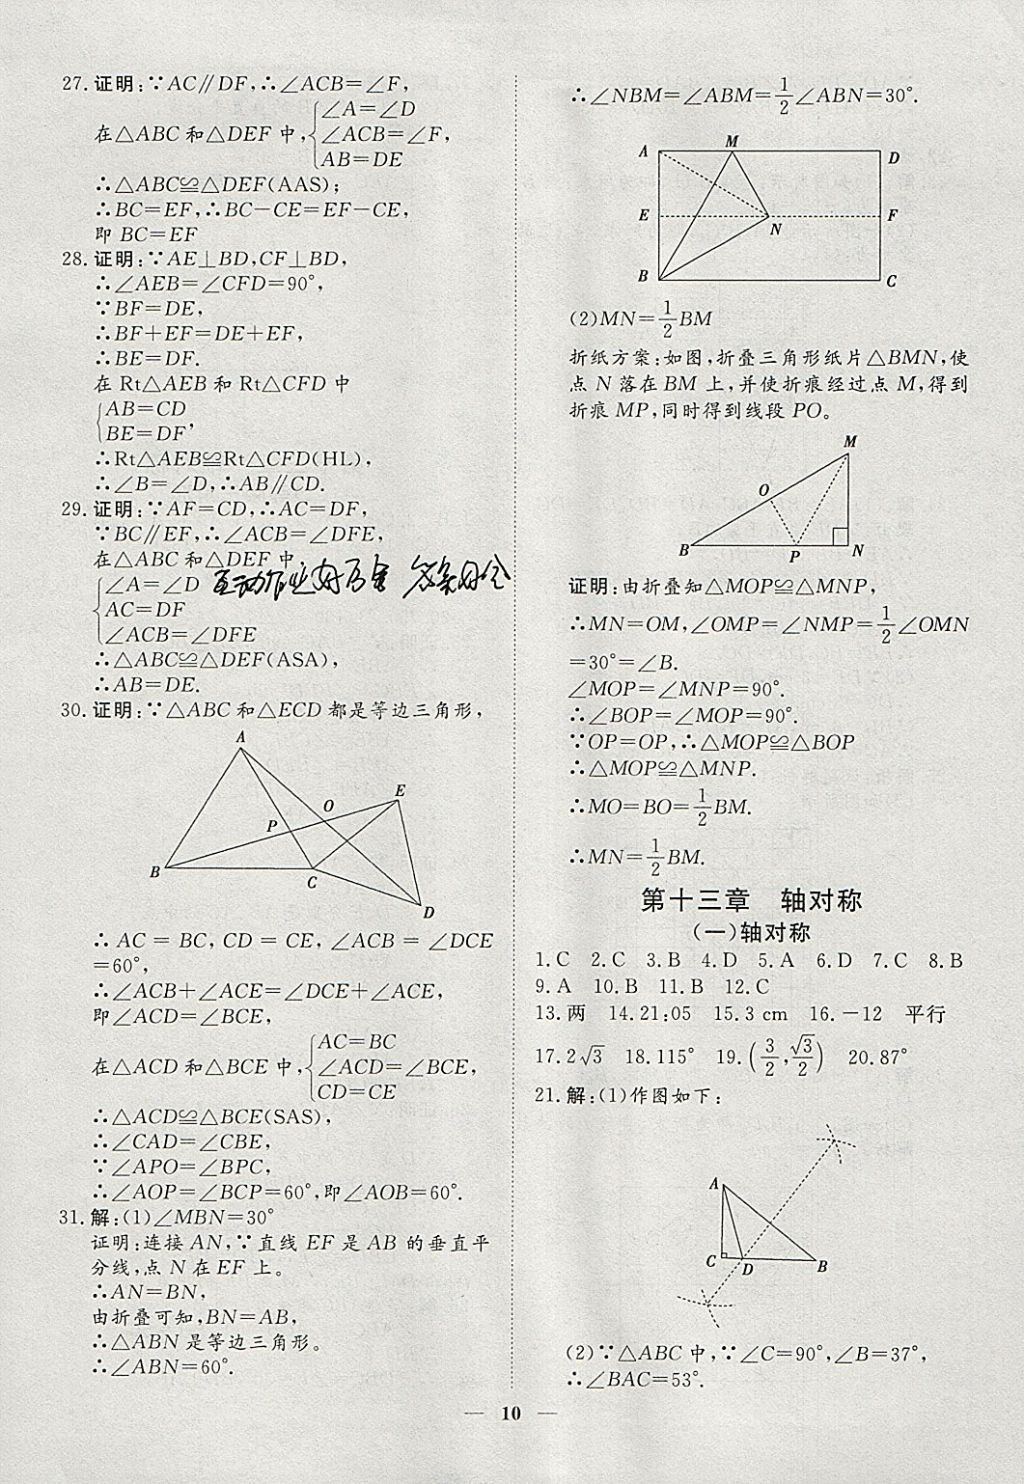 27. 证明:∵AC∥DF,∴∠ACB=∠F,
在△ABC 和△DEF 中,{∠A=∠D
∠ACB=∠F,
AB=DE
∴△ABC≌△DEF(AAS);
∴BC=EF,∴BC-CE=EF-CE,
即 BC=EF
28. 证明:∵AE⊥BD,CF⊥BD,
∴∠AEB=∠CFD=90°,
∵BF=DE,
∴BF+EF=DE+EF,
∴BE=DF.
在 Rt△AEB 和 Rt△CFD 中
{AB=CD
BE=DF,
∴Rt△AEB≌Rt△CFD(HL),
∴∠B=∠D,∴AB∥CD.
29. 证明:∵AF=CD,∴AC=DF,
∵BC∥EF,∴∠ACB=∠DFE,
在△ABC 和△DEF 中
{∠A=∠D
AC=DF
∠ACB=∠DFE
∴△ABC≌△DEF(ASA),
∴AB=DE.
30. 证明:∵△ABC 和△ECD 都是等边三角形,
A
E
O
P
B
C
D
∴ AC = BC, CD = CE, ∠ACB = ∠DCE
=60°,
∴∠ACB+∠ACE=∠DCE+∠ACE,
即∠ACD=∠BCE,
在△ACD 和△BCE 中,{AC=BC
∠ACD=∠BCE,
CD=CE
∴△ACD≌△BCE(SAS),
∴∠CAD=∠CBE,
∵∠APO=∠BPC,
∴∠AOP=∠BCP=60°,即∠AOB=60°.
31. 解:(1)∠MBN=30°
证明:连接 AN,∵直线 EF 是 AB 的垂直平
分线,点 N 在 EF 上。
∴AN=BN,
由折叠可知,BN=AB,
∴△ABN 是等边三角形。
∴∠ABN=60°.
∴∠NBM=∠ABM=1/2∠ABN=30°.
A M D
E N F
B C
(2)MN=1/2BM
折纸方案:如图,折叠三角形纸片△BMN,使
点 N 落在 BM 上,并使折痕经过点 M,得到
折痕 MP,同时得到线段 PO。
M
O
B P N
证明:由折叠知△MOP≌△MNP,
∴MN=OM,∠OMP=∠NMP=1/2∠OMN
=30°=∠B.
∠MOP=∠MNP=90°.
∴∠BOP=∠MOP=90°.
∵OP=OP,∴△MOP≌△BOP
∴△MOP≌△MNP.
∴MO=BO=1/2BM.
∴MN=1/2BM.
第十三章 轴对称
(一)轴对称
1. C 2. C 3. B 4. D 5. A 6. D 7. C 8. B
9. A 10. B 11. B 12. C
13. 两 14. 21:05 15. 3 cm 16. -12 平行
17. 2√3 18. 115° 19. (3/2, √3/2) 20. 87°
21. 解:(1)作图如下:
A
C D B
(2)∵△ABC 中,∵∠C=90°,∠B=37°,
∴∠BAC=53°.
— 10 —